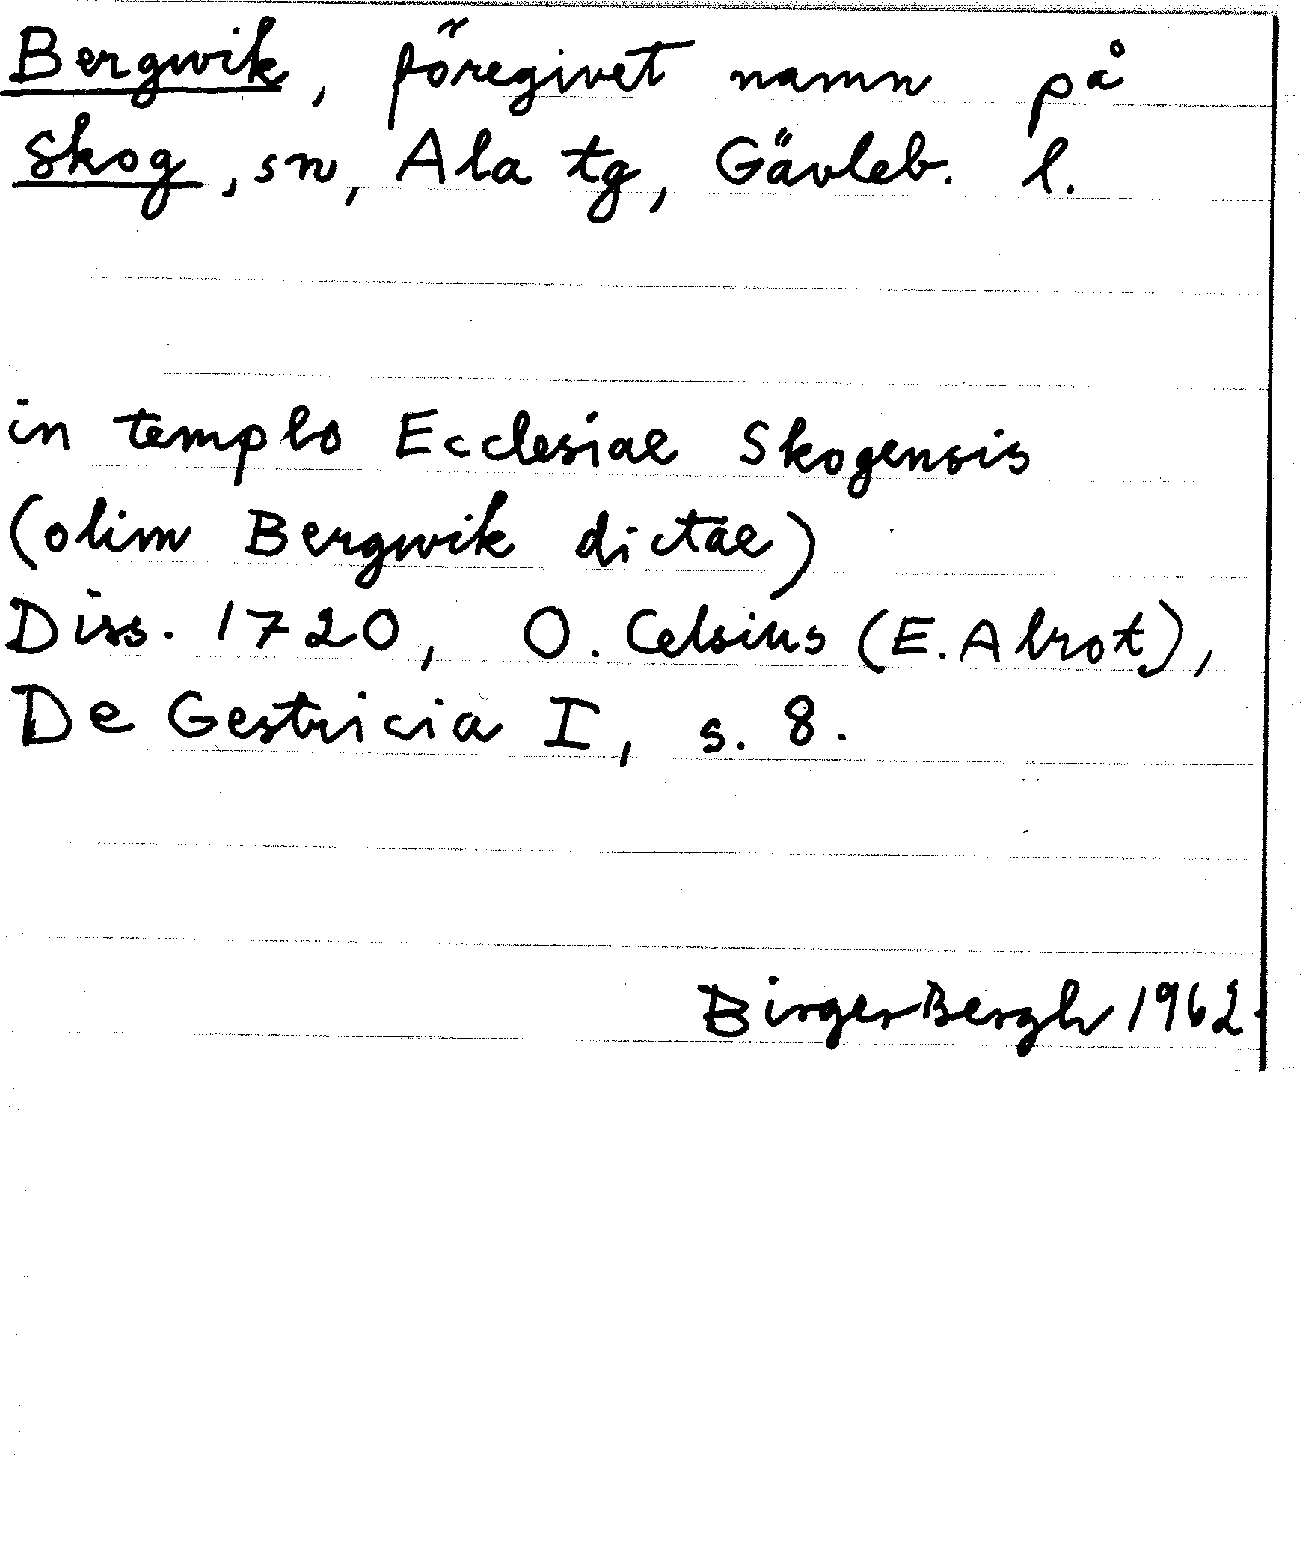 Bergwik, föregivet namn på
Skog, sn, Ala tg, Gävleb. l.
in templo Ecclesiae Skogensis
(olim Bergwik dictae)
Diss. 1720, O. Celsius (E. Alrot),
De Gestricia I, s. 8.
Birger Bergh 1962.